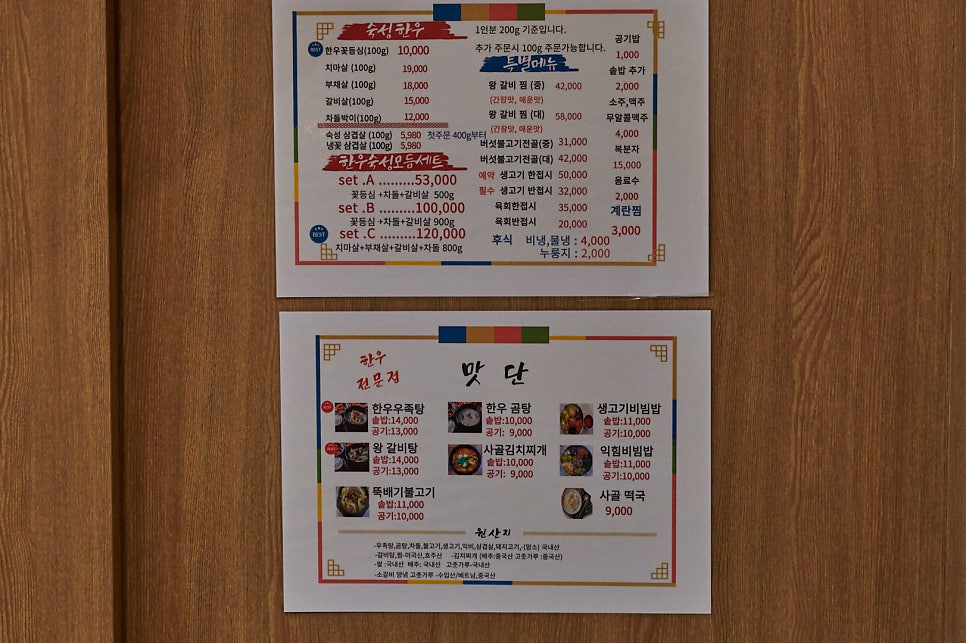 숙성한우
BEST 한우꽃등심(100g) 10,000
치마살 (100g) 19,000
부채살 (100g) 18,000
갈비살(100g) 15,000
차돌박이(100g) 12,000
숙성 삼겹살 (100g) 5,980 첫주문 400g부터
냉꽃 삼겹살 (100g) 5,980
한우숙성모듬세트
set .A .........53,000
꽃등심 +차돌+갈비살 500g
set .B .........100,000
꽃등심 +차돌+갈비살 900g
BEST set .C .........120,000
치마살+부채살+갈비살+차돌 800g
1인분 200g 기준입니다.
추가 주문시 100g 주문가능합니다.
특별메뉴
왕 갈비 찜 (중) 42,000
(간장맛, 매운맛)
왕 갈비 찜 (대) 58,000
(간장맛, 매운맛)
버섯불고기전골(중) 31,000
버섯불고기전골(대) 42,000
예약 생고기 한접시 50,000
필수 생고기 반접시 32,000
육회한접시 35,000
육회반접시 20,000
후식 비냉,물냉 : 4,000
누룽지 : 2,000
공기밥
1,000
솥밥 추가
2,000
소주,맥주
무알콜맥주
4,000
복분자
15,000
음료수
2,000
계란찜
3,000
한우
전문점
맛 단
BEST 한우우족탕
솥밥:14,000
공기:13,000
BEST 왕 갈비탕
솥밥:14,000
공기:13,000
뚝배기불고기
솥밥:11,000
공기:10,000
한우 곰탕
솥밥:10,000
공기: 9,000
사골김치찌개
솥밥:10,000
공기: 9,000
생고기비빔밥
솥밥:11,000
공기:10,000
익힘비빔밥
솥밥:11,000
공기:10,000
사골 떡국
9,000
원산지
-우족탕,곰탕,차돌,불고기,생고기,익비,삼겹살,돼지고기,-(암소) 국내산
-갈비탕,찜-미국산,호주산 -김치찌개 (배추:중국산 고춧가루 :중국산)
-쌀 :국내산 배추: 국내산 고춧가루-국내산
-소갈비 양념 고춧가루 -수입산/베트남,중국산